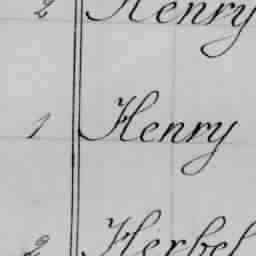 2 Henry
1 Henry
2 Herbel